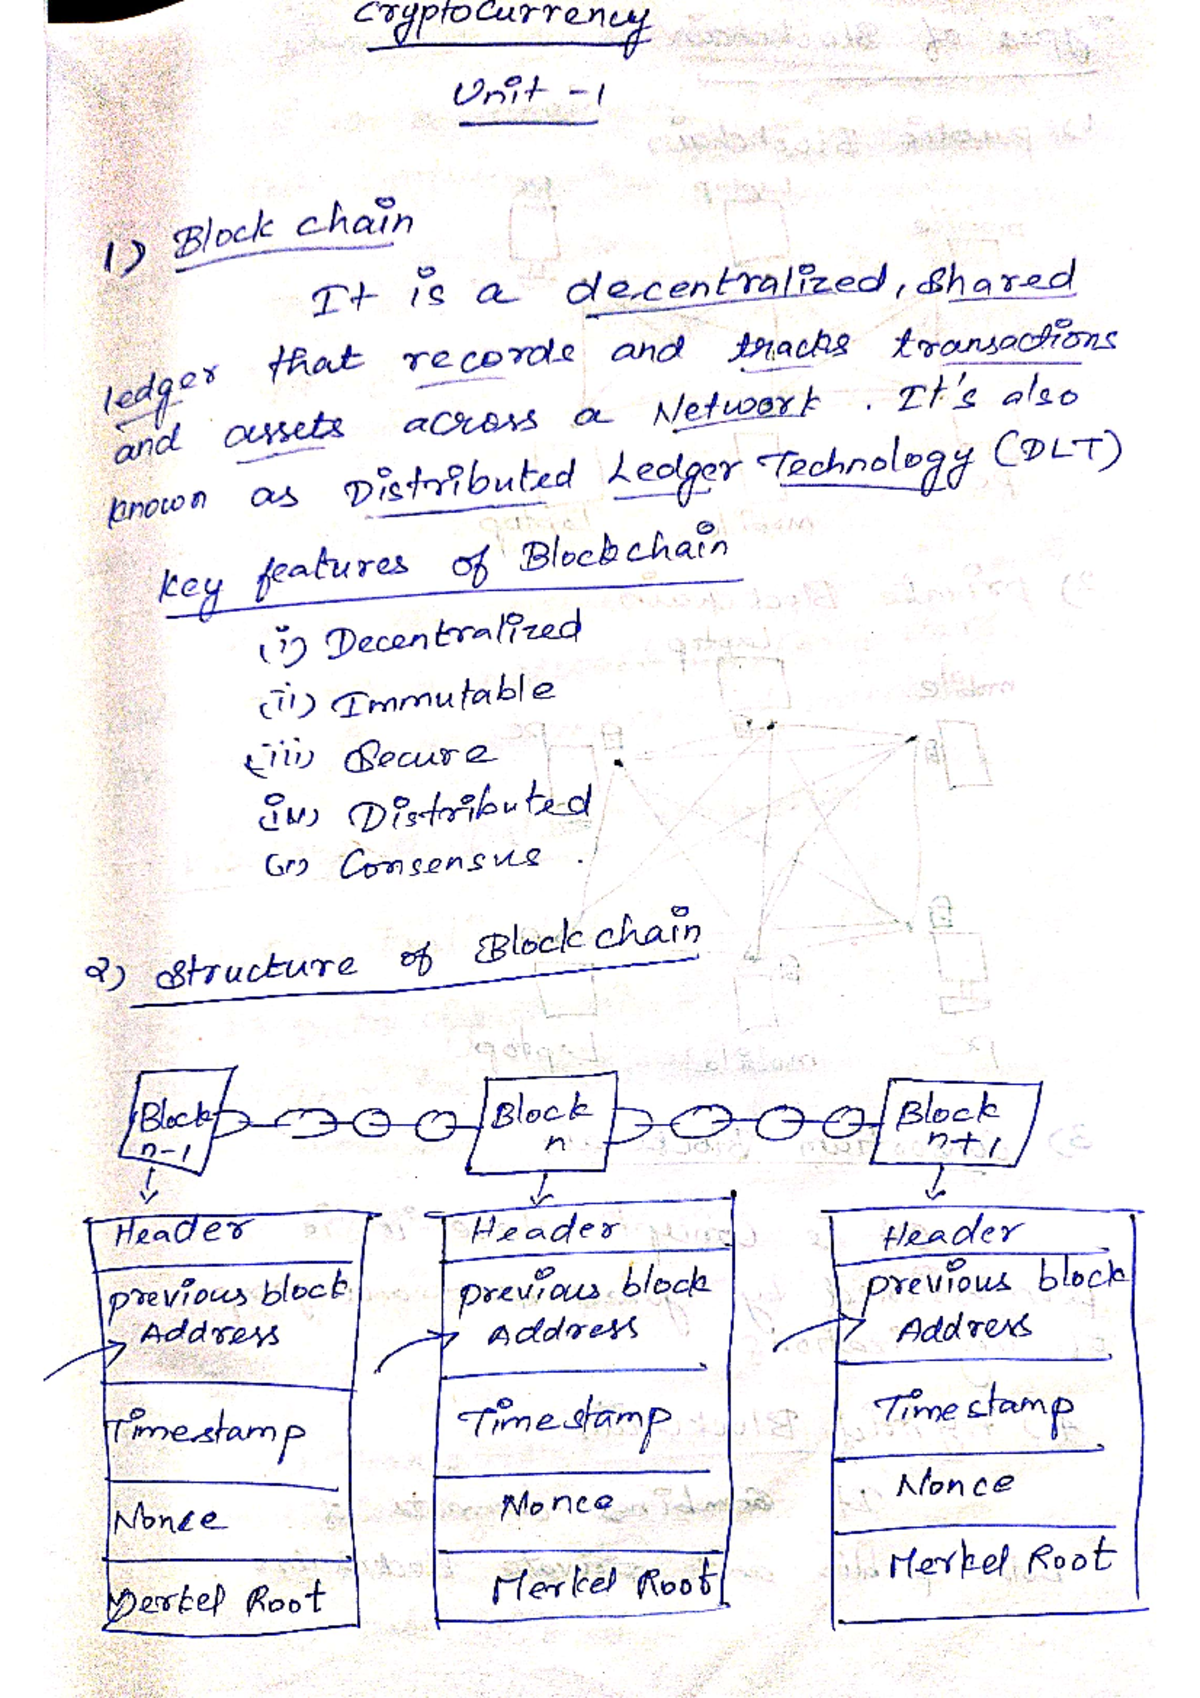 Cryptocurrency
Unit - 1
1) Block chain
It is a decentralized, shared
ledger that records and tracks transactions
and assets across a Network. It's also
known as Distributed Ledger Technology (DLT)
Key features of Blockchain
(i) Decentralized
(ii) Immutable
(iii) Secure
(iv) Distributed
(v) Consensus.
2) Structure of Block chain
Block n-1
Block n
Block n+1
Header
previous block
Address
Timestamp
Nonce
Merkel Root
Header
previous block
Address
Timestamp
Nonce
Merkel Root
Header
previous block
Address
Timestamp
Nonce
Merkel Root